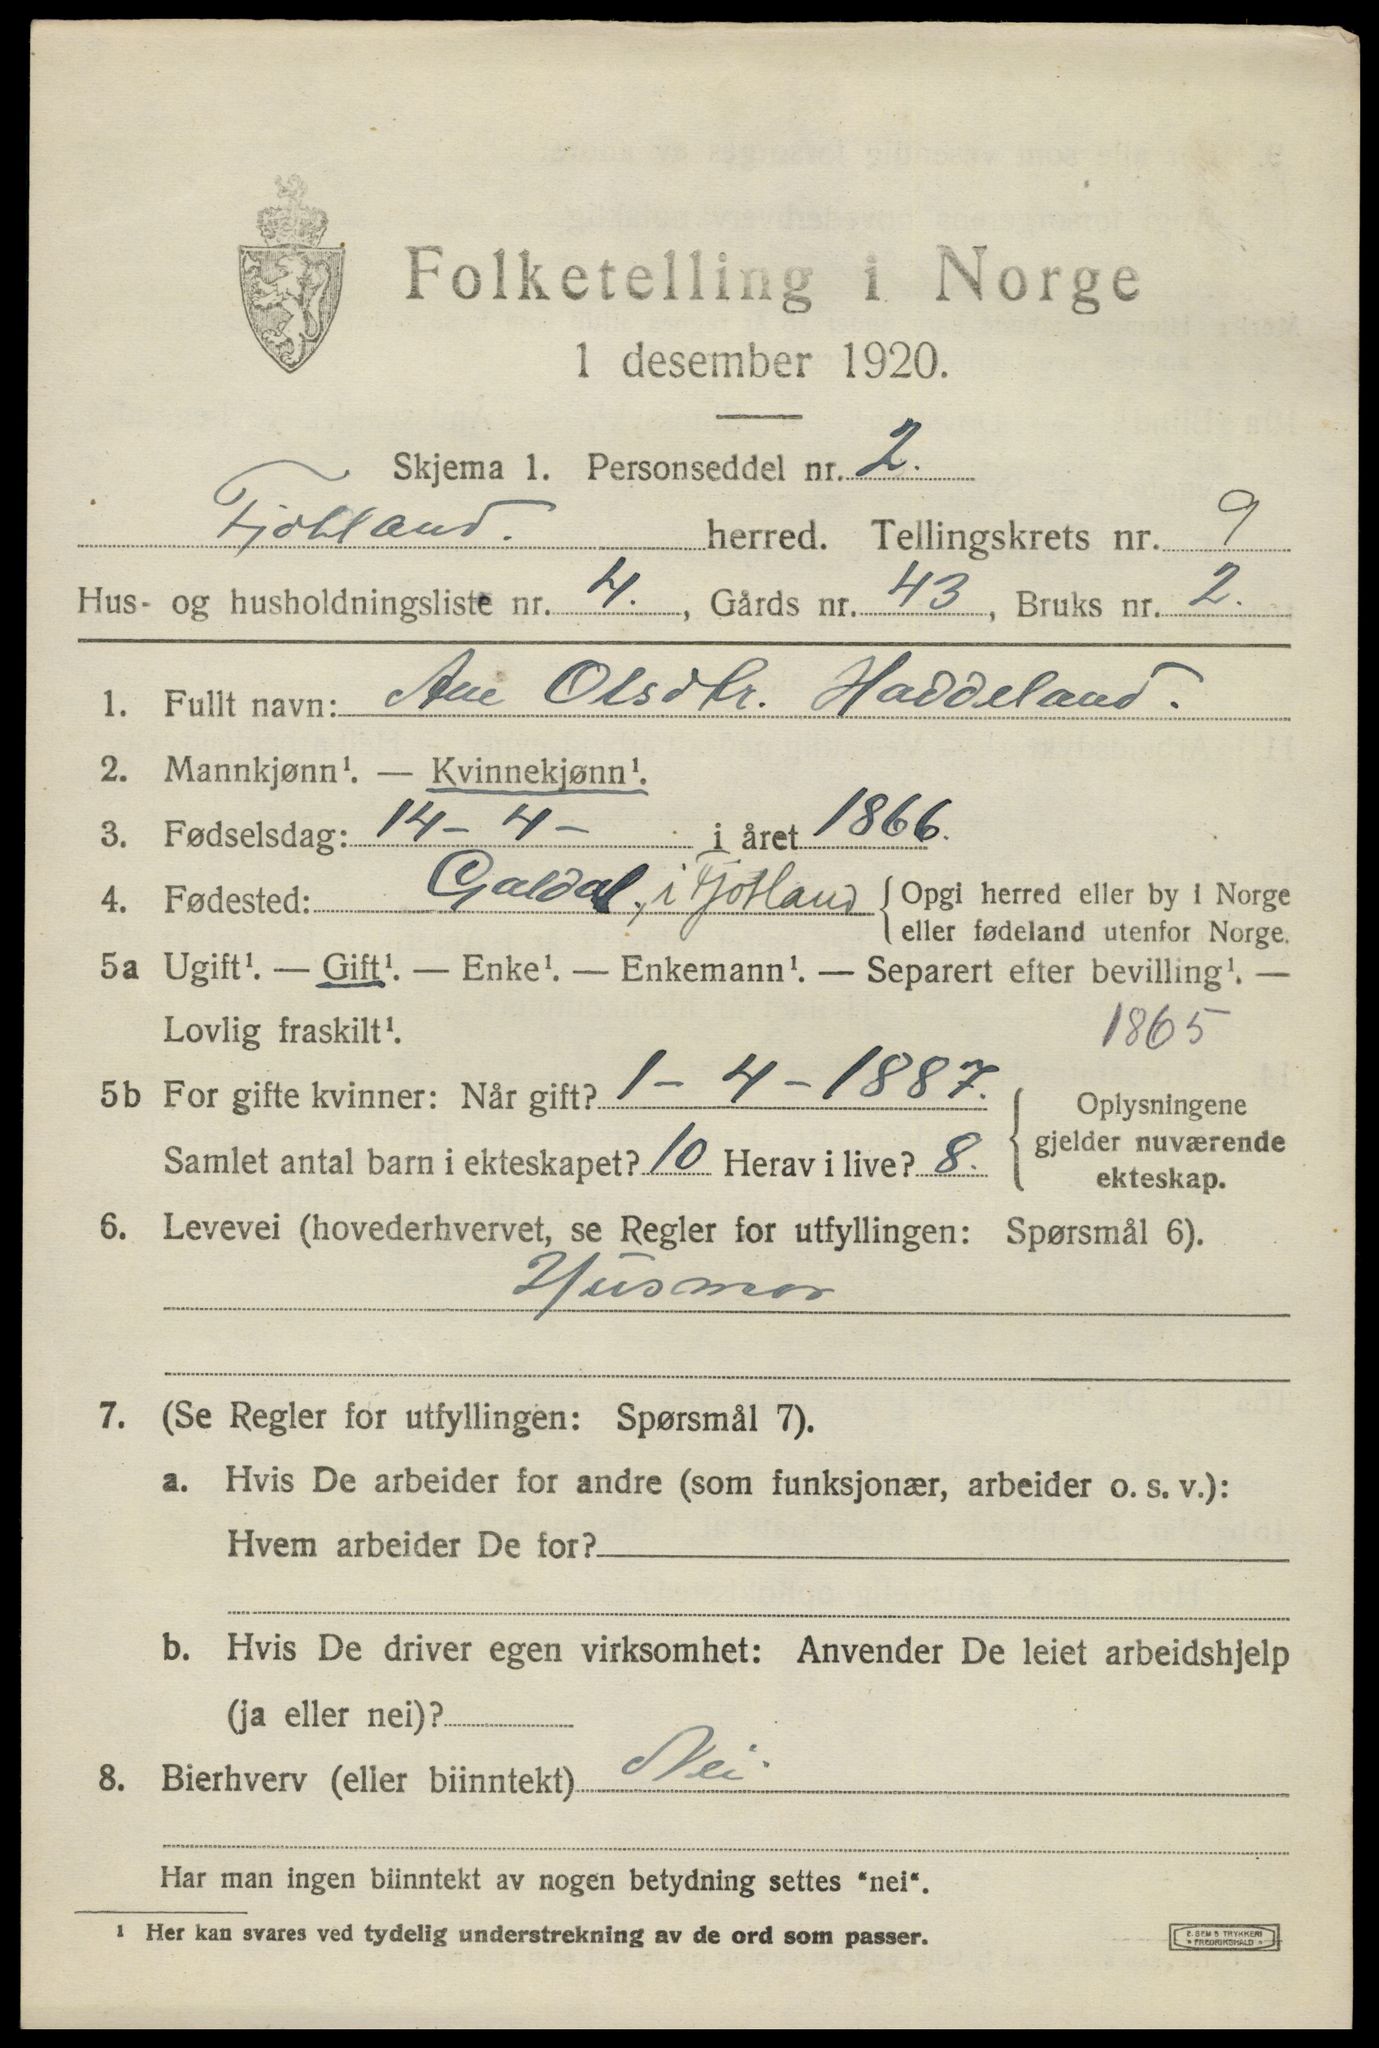 Folketelling i Norge
1 desember 1920.
Skjema 1. Personseddel nr. 2.
Fjotland. herred. Tellingskrets nr. 9
Hus- og husholdningsliste nr. 4., Gårds nr. 43, Bruks nr. 2.
1. Fullt navn: Ane Olsdtr. Haddeland.
2. Mannkjønn¹. — Kvinnekjønn¹.
3. Fødselsdag: 14 - 4 - i året 1866.
4. Fødested: Galdal, i Fjotland { Opgi herred eller by i Norge
eller fødeland utenfor Norge.
5a Ugift¹. — Gift¹. — Enke¹. — Enkemann¹. — Separert efter bevilling¹. —
Lovlig fraskilt¹. 1865
5b For gifte kvinner: Når gift? 1 - 4 - 1887.
Samlet antal barn i ekteskapet? 10 Herav i live? 8.
{ Oplysningene
gjelder nuværende
ekteskap.
6. Levevei (hovederhvervet, se Regler for utfyllingen: Spørsmål 6).
Husmor
7. (Se Regler for utfyllingen: Spørsmål 7).
a. Hvis De arbeider for andre (som funksjonær, arbeider o. s. v.):
Hvem arbeider De for?
b. Hvis De driver egen virksomhet: Anvender De leiet arbeidshjelp
(ja eller nei)?
8. Bierhverv (eller biinntekt) Nei.
Har man ingen biinntekt av nogen betydning settes "nei".
¹ Her kan svares ved tydelig understrekning av de ord som passer.
E. SEM'S TRYKKERI
FREDRIKSHALD